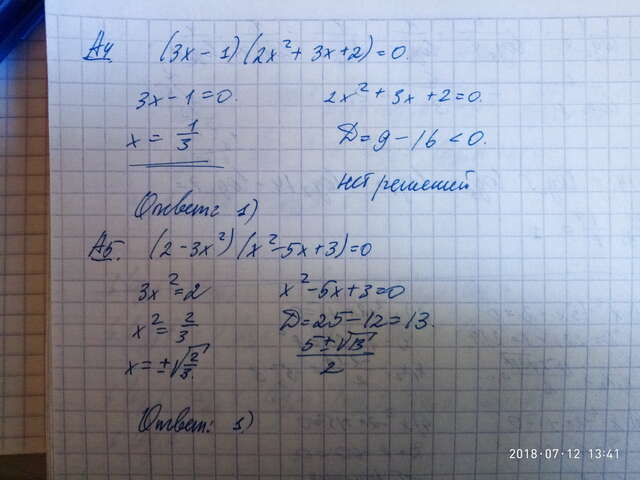 А4 (3x-1)(2x²+3x+2)=0.
3x-1=0. 2x²+3x+2=0.
x = 1/3 Д=9-16<0.
нет решений
Ответ: 1)
А5. (2-3x²)(x²-5x+3)=0
3x²=2 x²-5x+3=0
x²=2/3 Д=25-12=13.
x=±√(2/3). (5±√13)/2
Ответ: 1)
2018-07-12 13:41